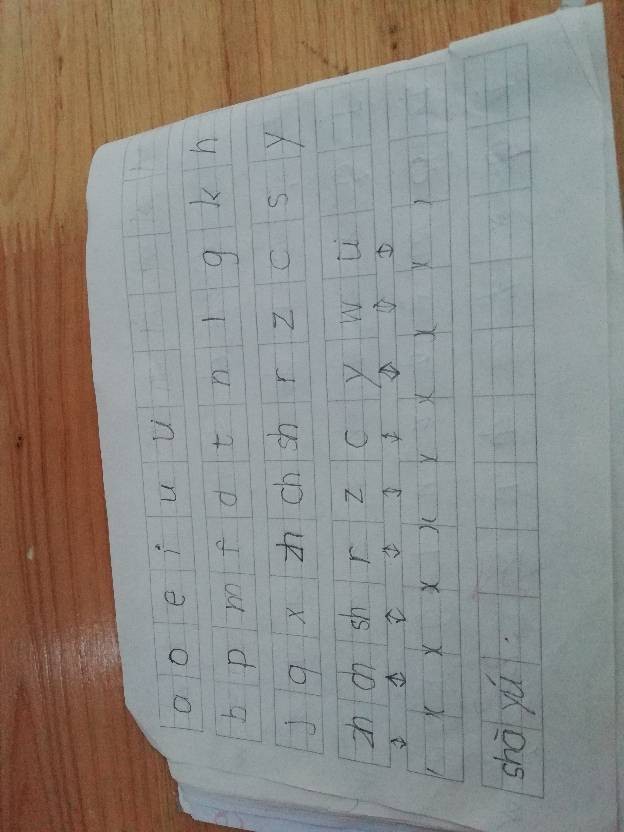 a o e i u ü
b p m f d t n l g k h
j q x zh ch sh r z c s y
zh ch sh r z c y w ü
x x x x x x x x
shā yú.